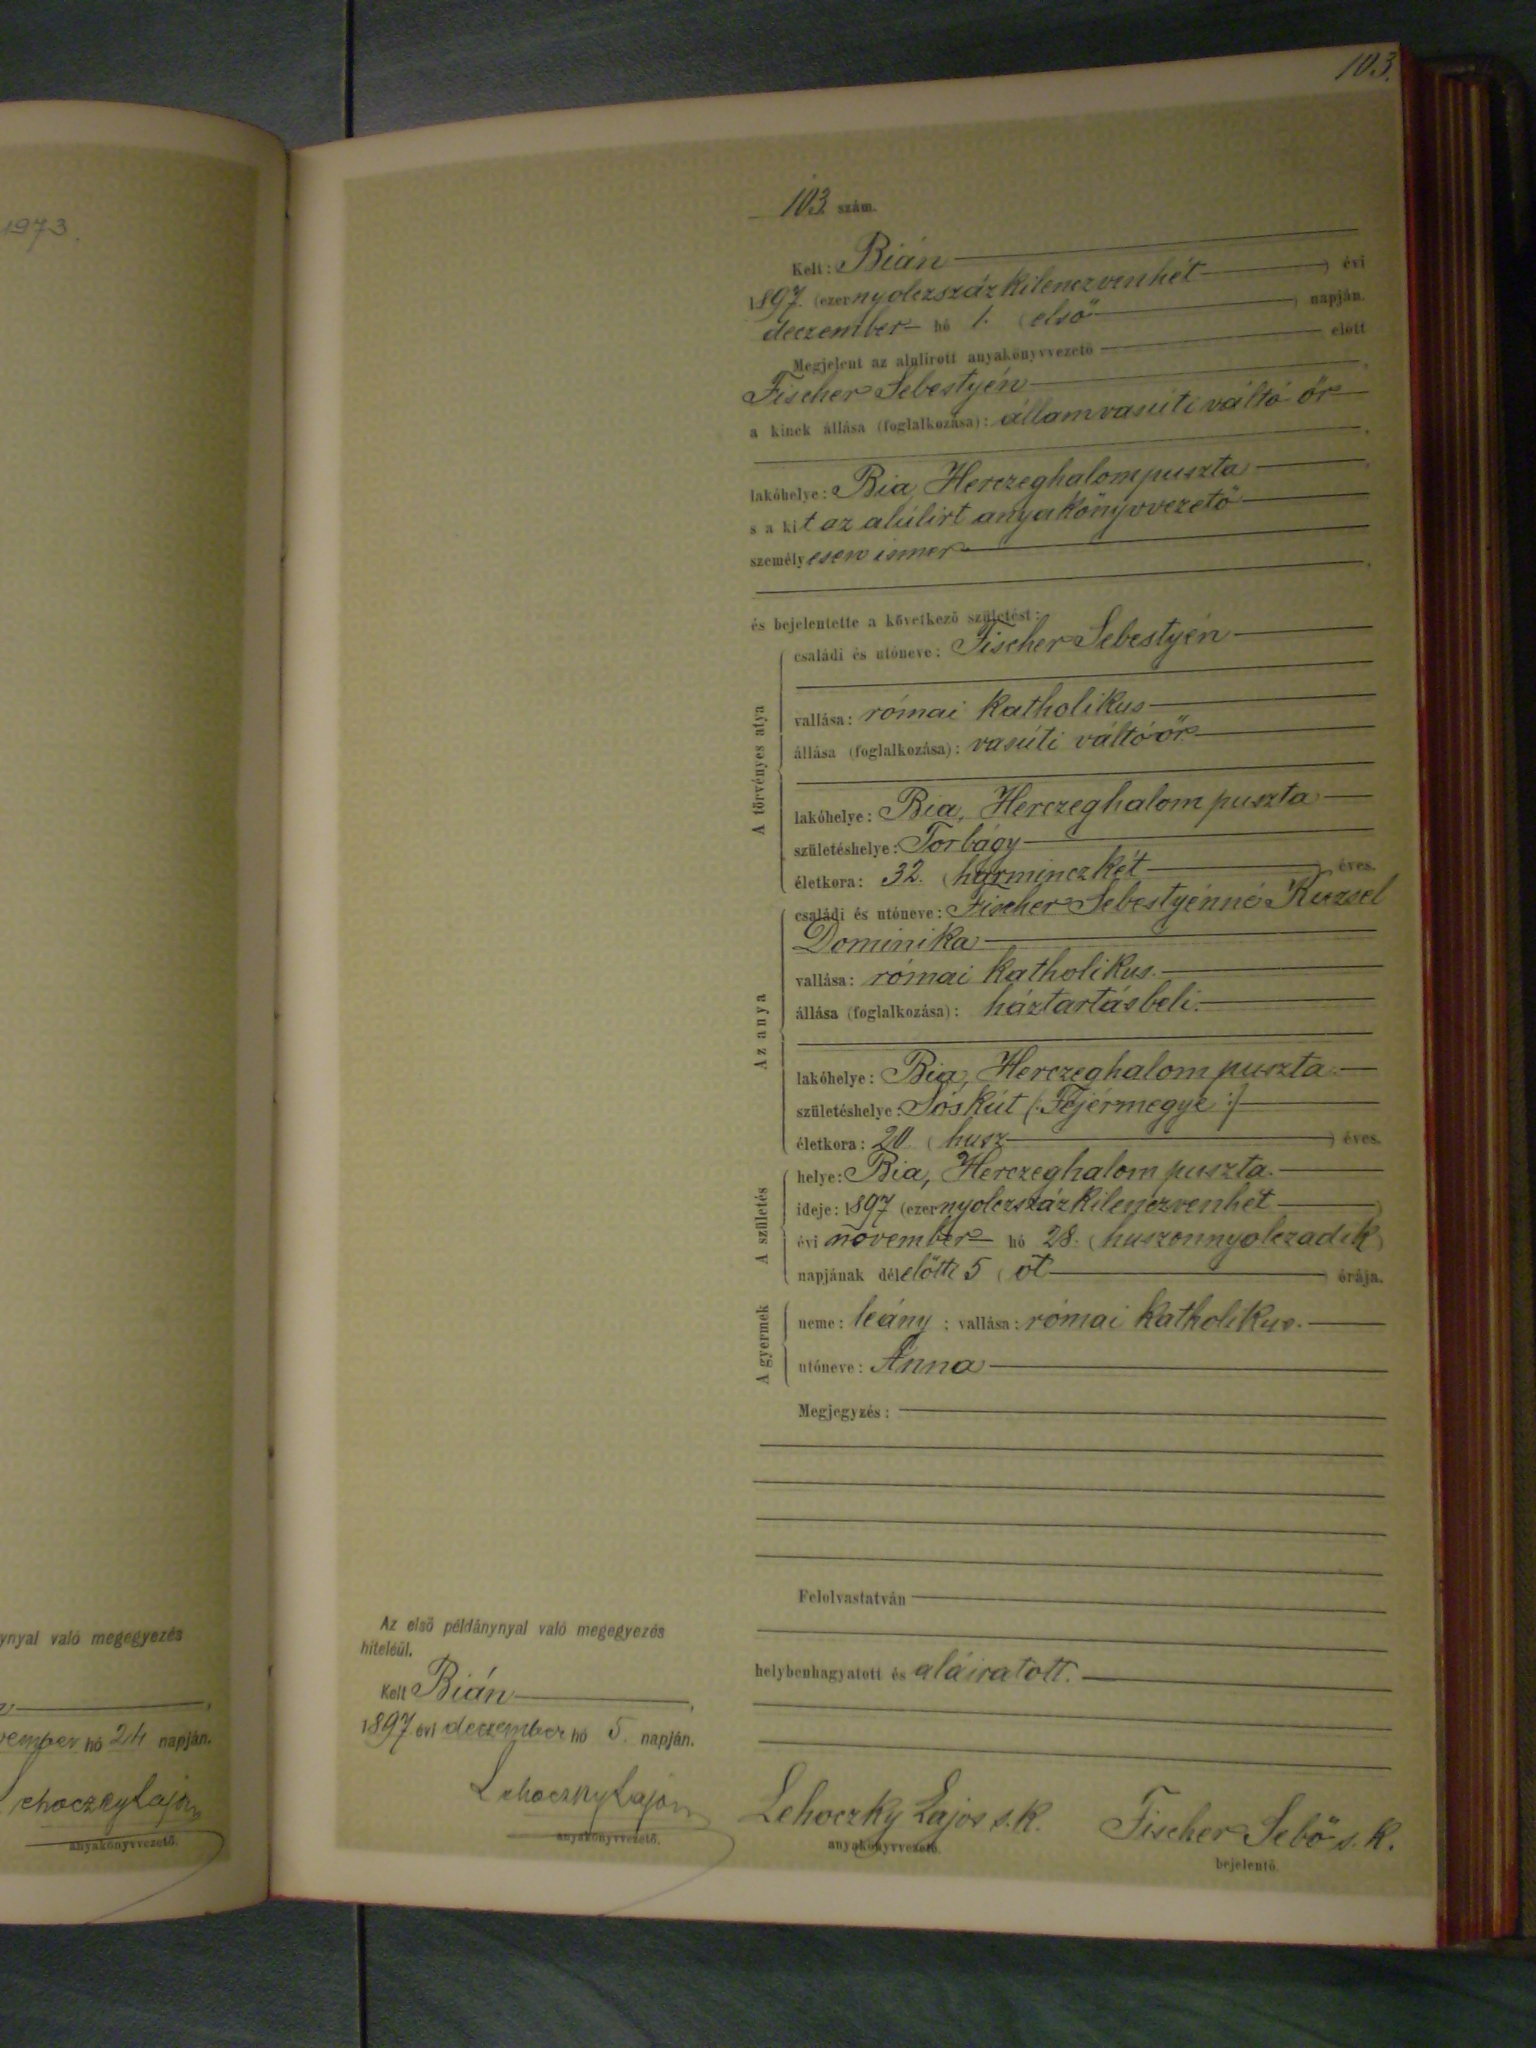 1973.
103.
103. szám.
Kelt: Bián
1897. (ezernyolczszázkilenczvenhét) évi
deczember hó 1. (első) napján.
Megjelent az alulirott anyakönyvvezető előtt
Fischer Sebestyén
a kinek állása (foglalkozása): államvasúti váltó őr
lakóhelye: Bia, Herczeghalompuszta
s a kit az alúlirt anyakönyvvezető
személyesen ismer
és bejelentette a következő születést:
A törvényes atya
családi és utóneve: Fischer Sebestyén
vallása: római katholikus
állása (foglalkozása): vasúti váltóőr
lakóhelye: Bia, Herczeghalom puszta
születéshelye: Torbágy
életkora: 32. (harminczkét) éves.
Az anya
családi és utóneve: Fischer Sebestyénné
Dominika
vallása: római katholikus.
állása (foglalkozása): háztartásbeli.
lakóhelye: Bia, Herczeghalom puszta.
születéshelye: Sóskút (: Fejérmegye :)
életkora: 20 (husz) éves.
A születés
helye: Bia, Herczeghalom puszta.
ideje: 1897 (ezernyolczszázkilenczvenhét)
évi november hó 28. (huszonnyolczadik)
napjának délelőtti 5 (öt) órája.
A gyermek
neme: leány; vallása: római katholikus.
utóneve: Anna
Megjegyzés:
Felolvastatván
helybenhagyatott és aláiratott.
Lehoczky Lajos s. k.
anyakönyvvezető.
Fischer Sebő s. k.
bejelentő.
Az első példánynyal való megegyezés
hiteléül.
Kelt Bián
1897 évi deczember hó 5. napján.
Lehoczky Lajos
anyakönyvvezető.
ynyal való megegyezés
vember hó 24 napján.
ehoczky Lajos
anyakönyvvezető.